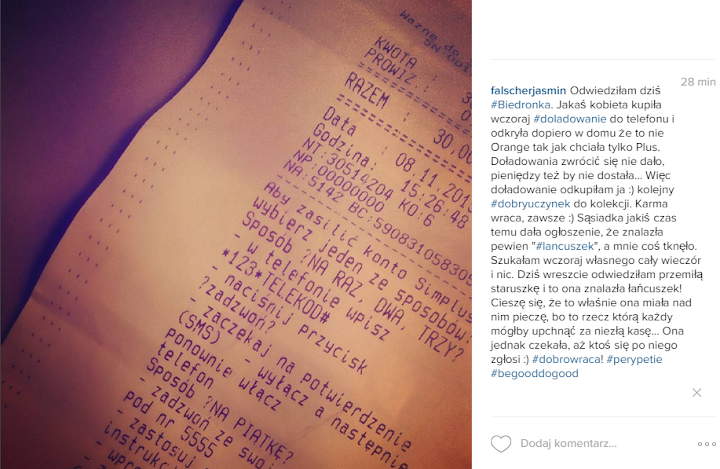 Ważne do
KWOTA :
PROWIZ.:
RAZEM : 30,00
Data : 08.11.201
Godzina: 15:26:48
NT:30514204 KO:6
NP:00000000
NA:5142 BC:590831058305
Aby zasilić konto Simplus
wybierz jeden ze sposobów:
Sposób !NA RAZ, DWA, TRZY?
- w telefonie wpisz
*123*TELEKOD#
- naciśnij przycisk
?zadzwoń?
- zaczekaj na potwierdzenie
(SMS) - wyłącz a następnie
ponownie włącz
telefon
Sposób !NA PIĄTKĘ?
- zadzwoń ze swo
pod nr 5555
- zastosuj
instrukc
28 min
falscherjasmin Odwiedziłam dziś
#Biedronka. Jakaś kobieta kupiła
wczoraj #doladowanie do telefonu i
odkryła dopiero w domu że to nie
Orange tak jak chciała tylko Plus.
Doładowania zwrócić się nie dało,
pieniędzy też by nie dostała... Więc
doładowanie odkupiłam ja :) kolejny
#dobryuczynek do kolekcji. Karma
wraca, zawsze :) Sąsiadka jakiś czas
temu dała ogłoszenie, że znalazła
pewien "#lancuszek", a mnie coś tknęło.
Szukałam wczoraj własnego cały wieczór
i nic. Dziś wreszcie odwiedziłam przemiłą
staruszkę i to ona znalazła łańcuszek!
Cieszę się, że to właśnie ona miała nad
nim pieczę, bo to rzecz którą każdy
mógłby upchnąć za niezłą kasę... Ona
jednak czekała, aż ktoś się po niego
zgłosi :) #dobrowraca! #perypetie
#begooddogood
Dodaj komentarz...